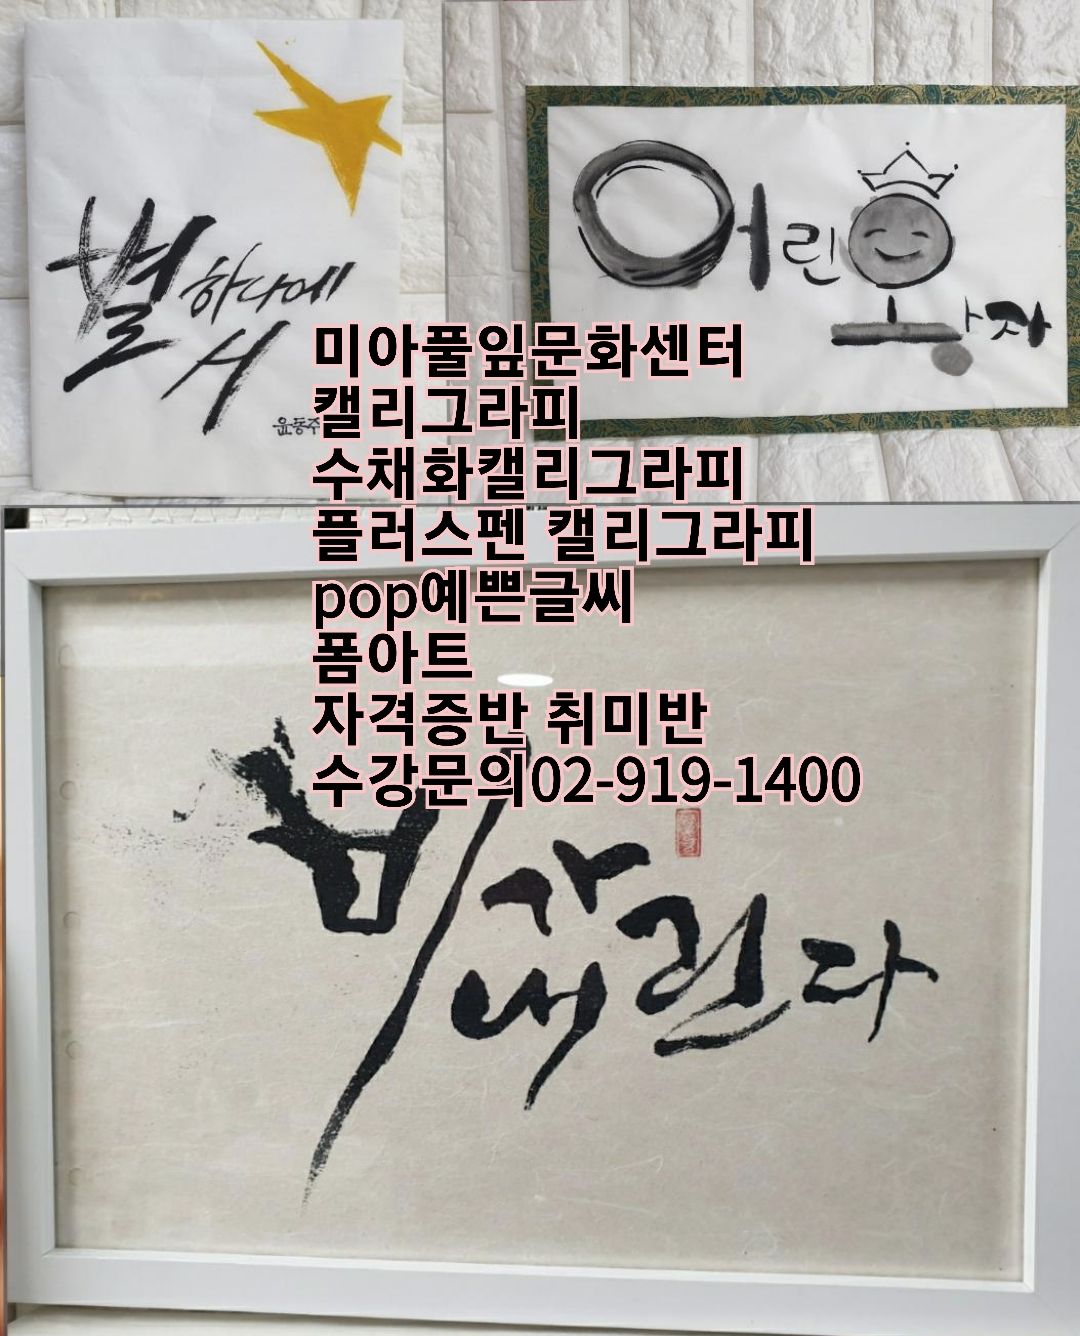 별 하나에 시
윤동주
어린왕자
미아풀잎문화센터
캘리그라피
수채화캘리그라피
플러스펜 캘리그라피
pop예쁜글씨
폼아트
자격증반 취미반
수강문의02-919-1400
비가
내린다